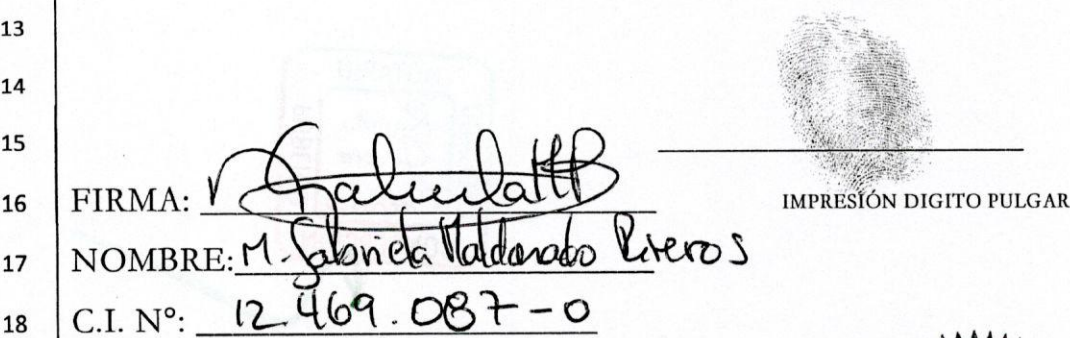 13
14
15
16 FIRMA: Gabriela MB
IMPRESIÓN DIGITO PULGAR
17 NOMBRE: M. Gabriela Maldonado Riveros
18 C.I. N°: 12.469.087-0